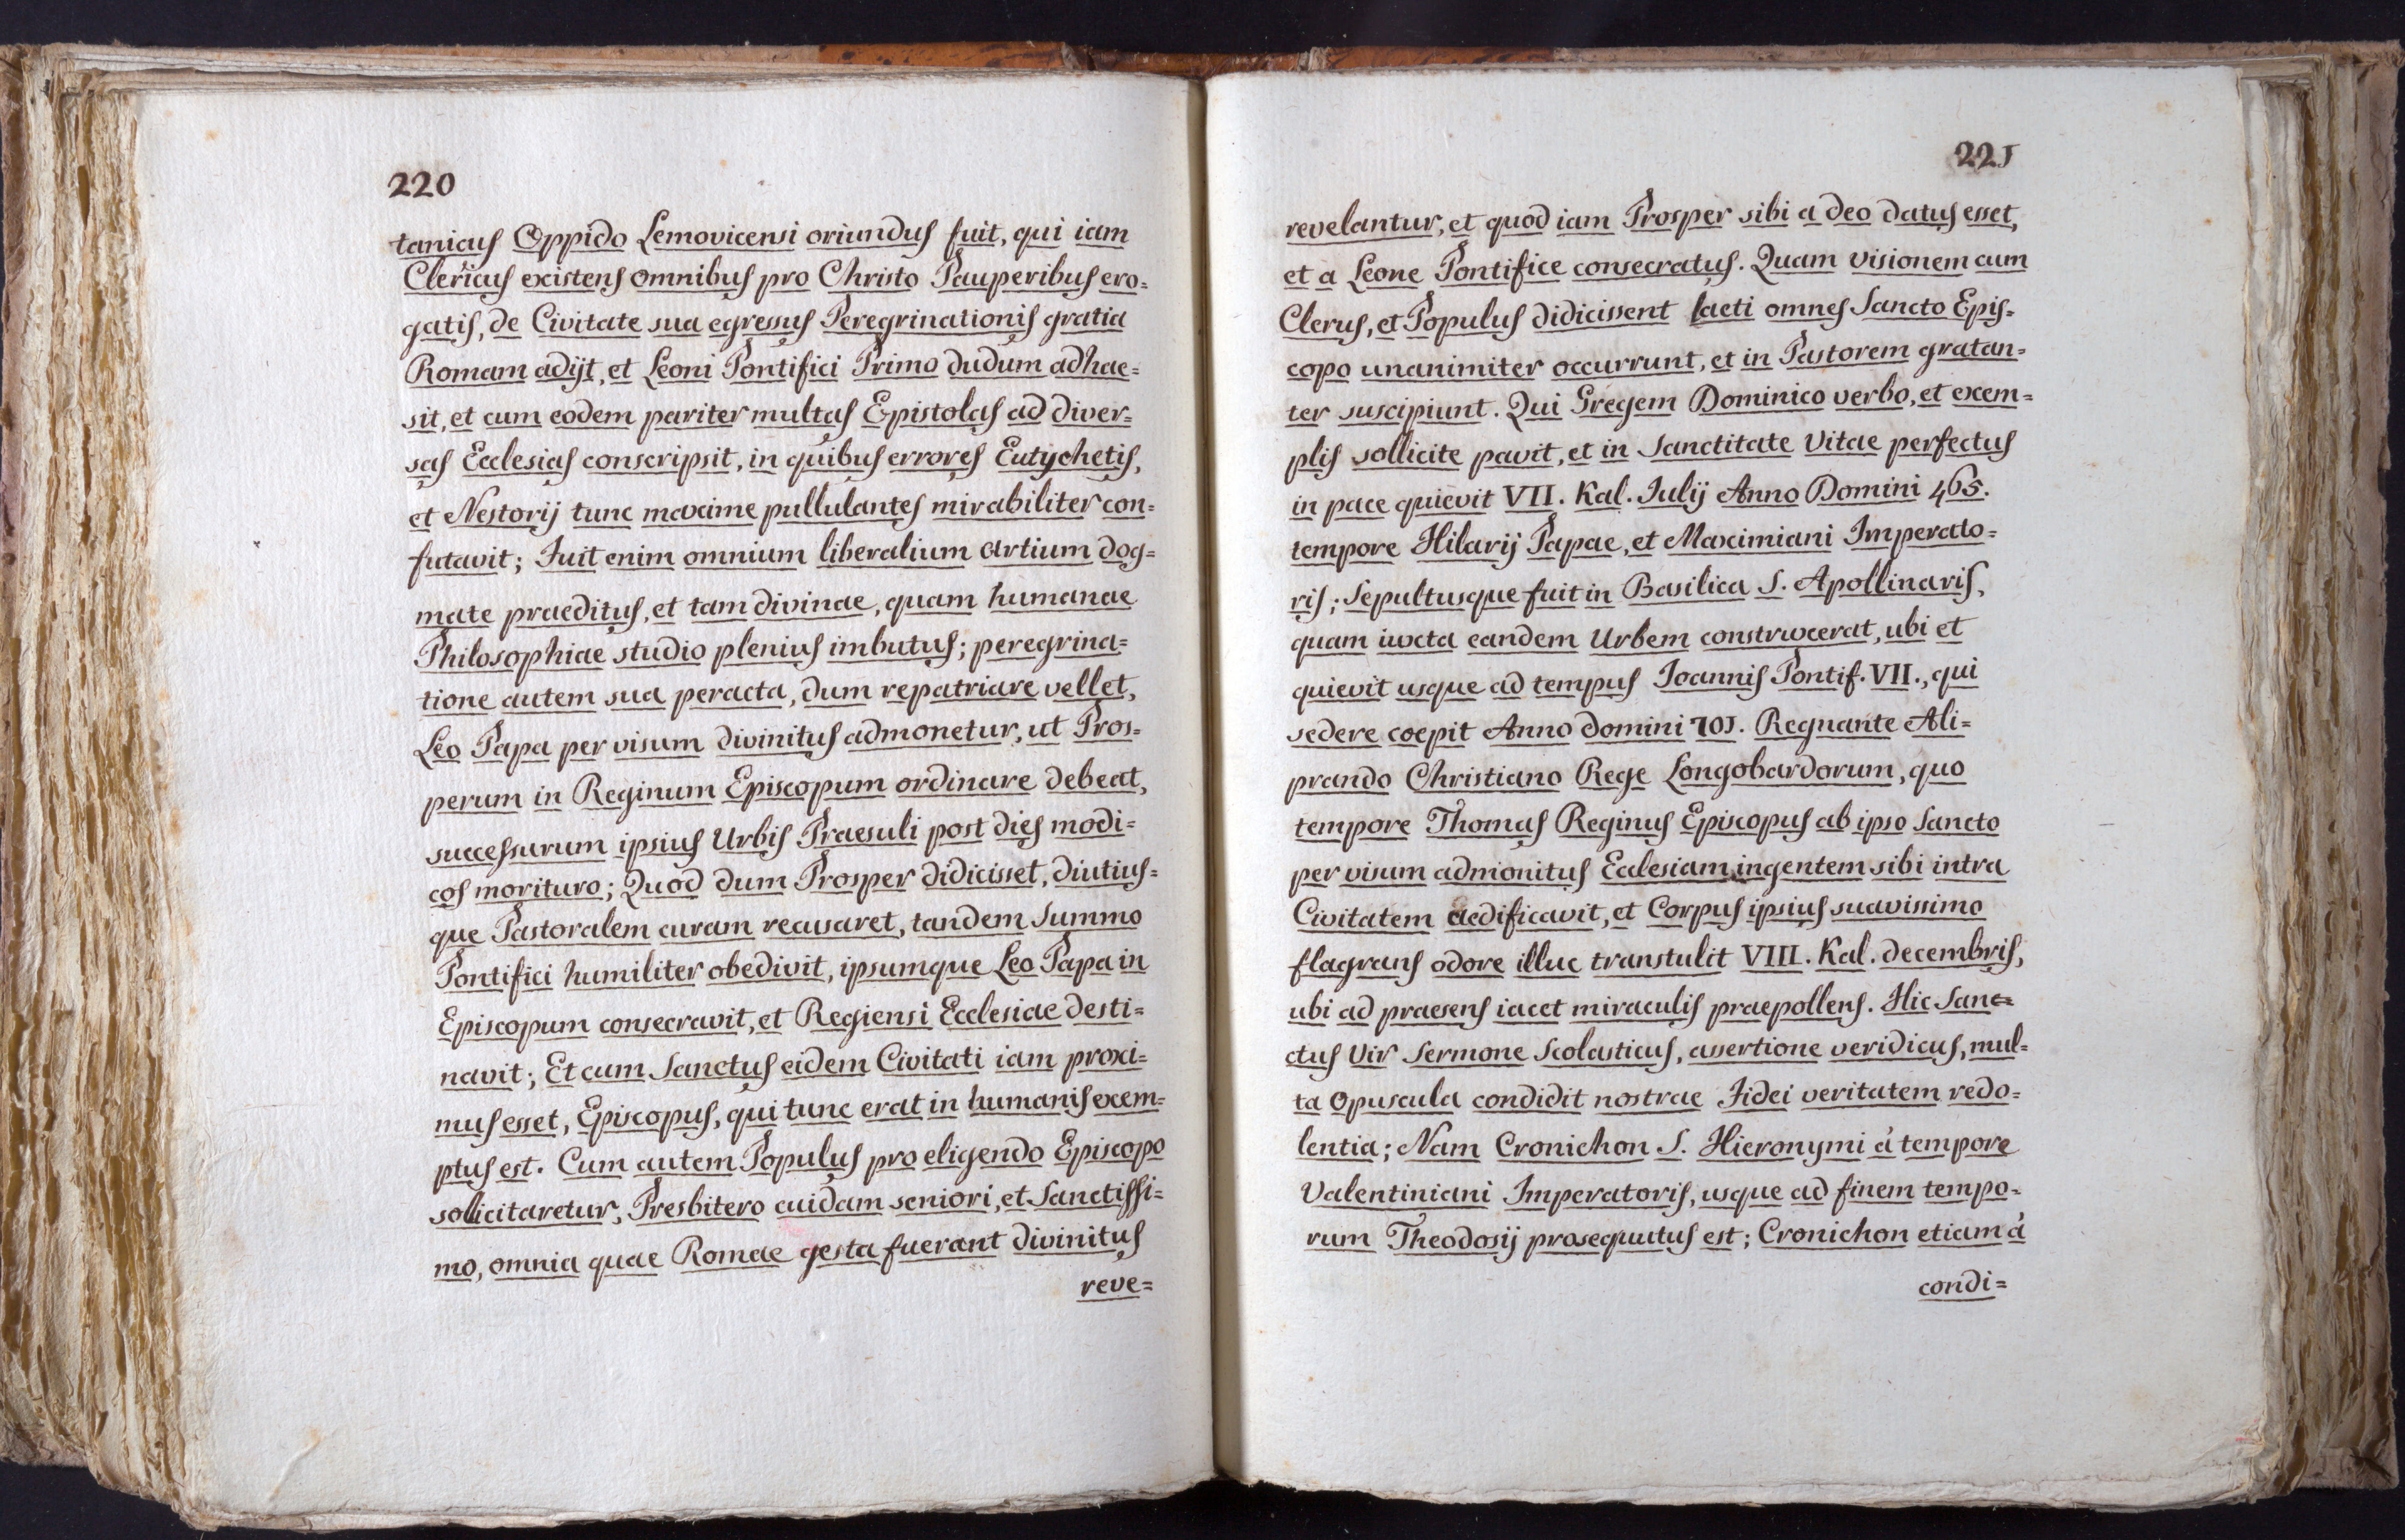 220
tanicus Oppido Lemovicensi oriundus fuit, qui iam
Clericus existens omnibus pro Christo Pauperibus ero=
gatis, de Civitate sua egressus Peregrinationis gratia
Romam adijt, et Leoni Pontifici Primo dudum adhae=
sit, et cum eodem pariter multas Epistolas ad diver=
sas Ecclesias conscripsit, in quibus errores Eutychetis,
et Nestorij tunc maxime pullulantes mirabiliter con=
futavit; Fuit enim omnium liberalium artium dog=
mate praeditus, et tam divinae, quam humanae
Philosophiae studio plenius imbutus; peregrina=
tione autem sua peracta, dum repatriare vellet,
Leo Papa per visum divinitus admonetur, ut Pros=
perum in Reginum Episcopum ordinare debeat,
successurum ipsius Urbis Praesuli post dies modi=
cos morituro; Quod dum Prosper didicisset, diutius=
que Pastoralem curam recusaret, tandem Summo
Pontifici humiliter obedivit, ipsumque Leo Papa in
Episcopum consecravit, et Regiensi Ecclesiae desti=
navit; Et cum Sanctus eidem Civitati iam proxi=
mus esset, Episcopus, qui tunc erat in humanis exem=
ptus est. Cum autem Populus pro eligendo Episcopo
sollicitaretur, Presbitero cuidam seniori, et Sanctissi=
mo, omnia quae Romae gesta fuerant divinitus
reve=
221
revelantur, et quod iam Prosper sibi a deo datus esset,
et a Leone Pontifice consecratus. Quam visionem cum
Clerus, et Populus didicissent laeti omnes Sancto Epis=
copo unanimiter occurrunt, et in Pastorem gratan=
ter suscipiunt. Qui Gregem Dominico verbo, et exem=
plis sollicite pavit, et in Sanctitate Vitae perfectus
in pace quievit VII. Kal. Iulij Anno Domini 465.
tempore Hilarij Papae, et Maximiani Imperato=
ris; Sepultusque fuit in Basilica S. Apollinaris,
quam iuxta eandem Urbem construxerat, ubi et
quievit usque ad tempus Ioannis Pontif. VII., qui
sedere coepit Anno Domini 701. Regnante Ali=
prando Christiano Rege Longobardorum, quo
tempore Thomas Reginus Episcopus ab ipso Sancto
per visum admonitus Ecclesiam ingentem sibi intra
Civitatem aedificavit, et Corpus ipsius suavissimo
flagrans odore illuc transtulit VIII. Kal. decembris,
ubi ad praesens iacet miraculis praepollens. Hic Sanc=
ctus Vir Sermone Scolasticus, assertione veridicus, mul=
ta Opuscula condidit nostrae Fidei veritatem redo=
lentia; Nam Cronichon S. Hieronymi à tempore
Valentiniani Imperatoris, usque ad finem tempo=
rum Theodosij prosequutus est; Cronichon etiam à
condi=